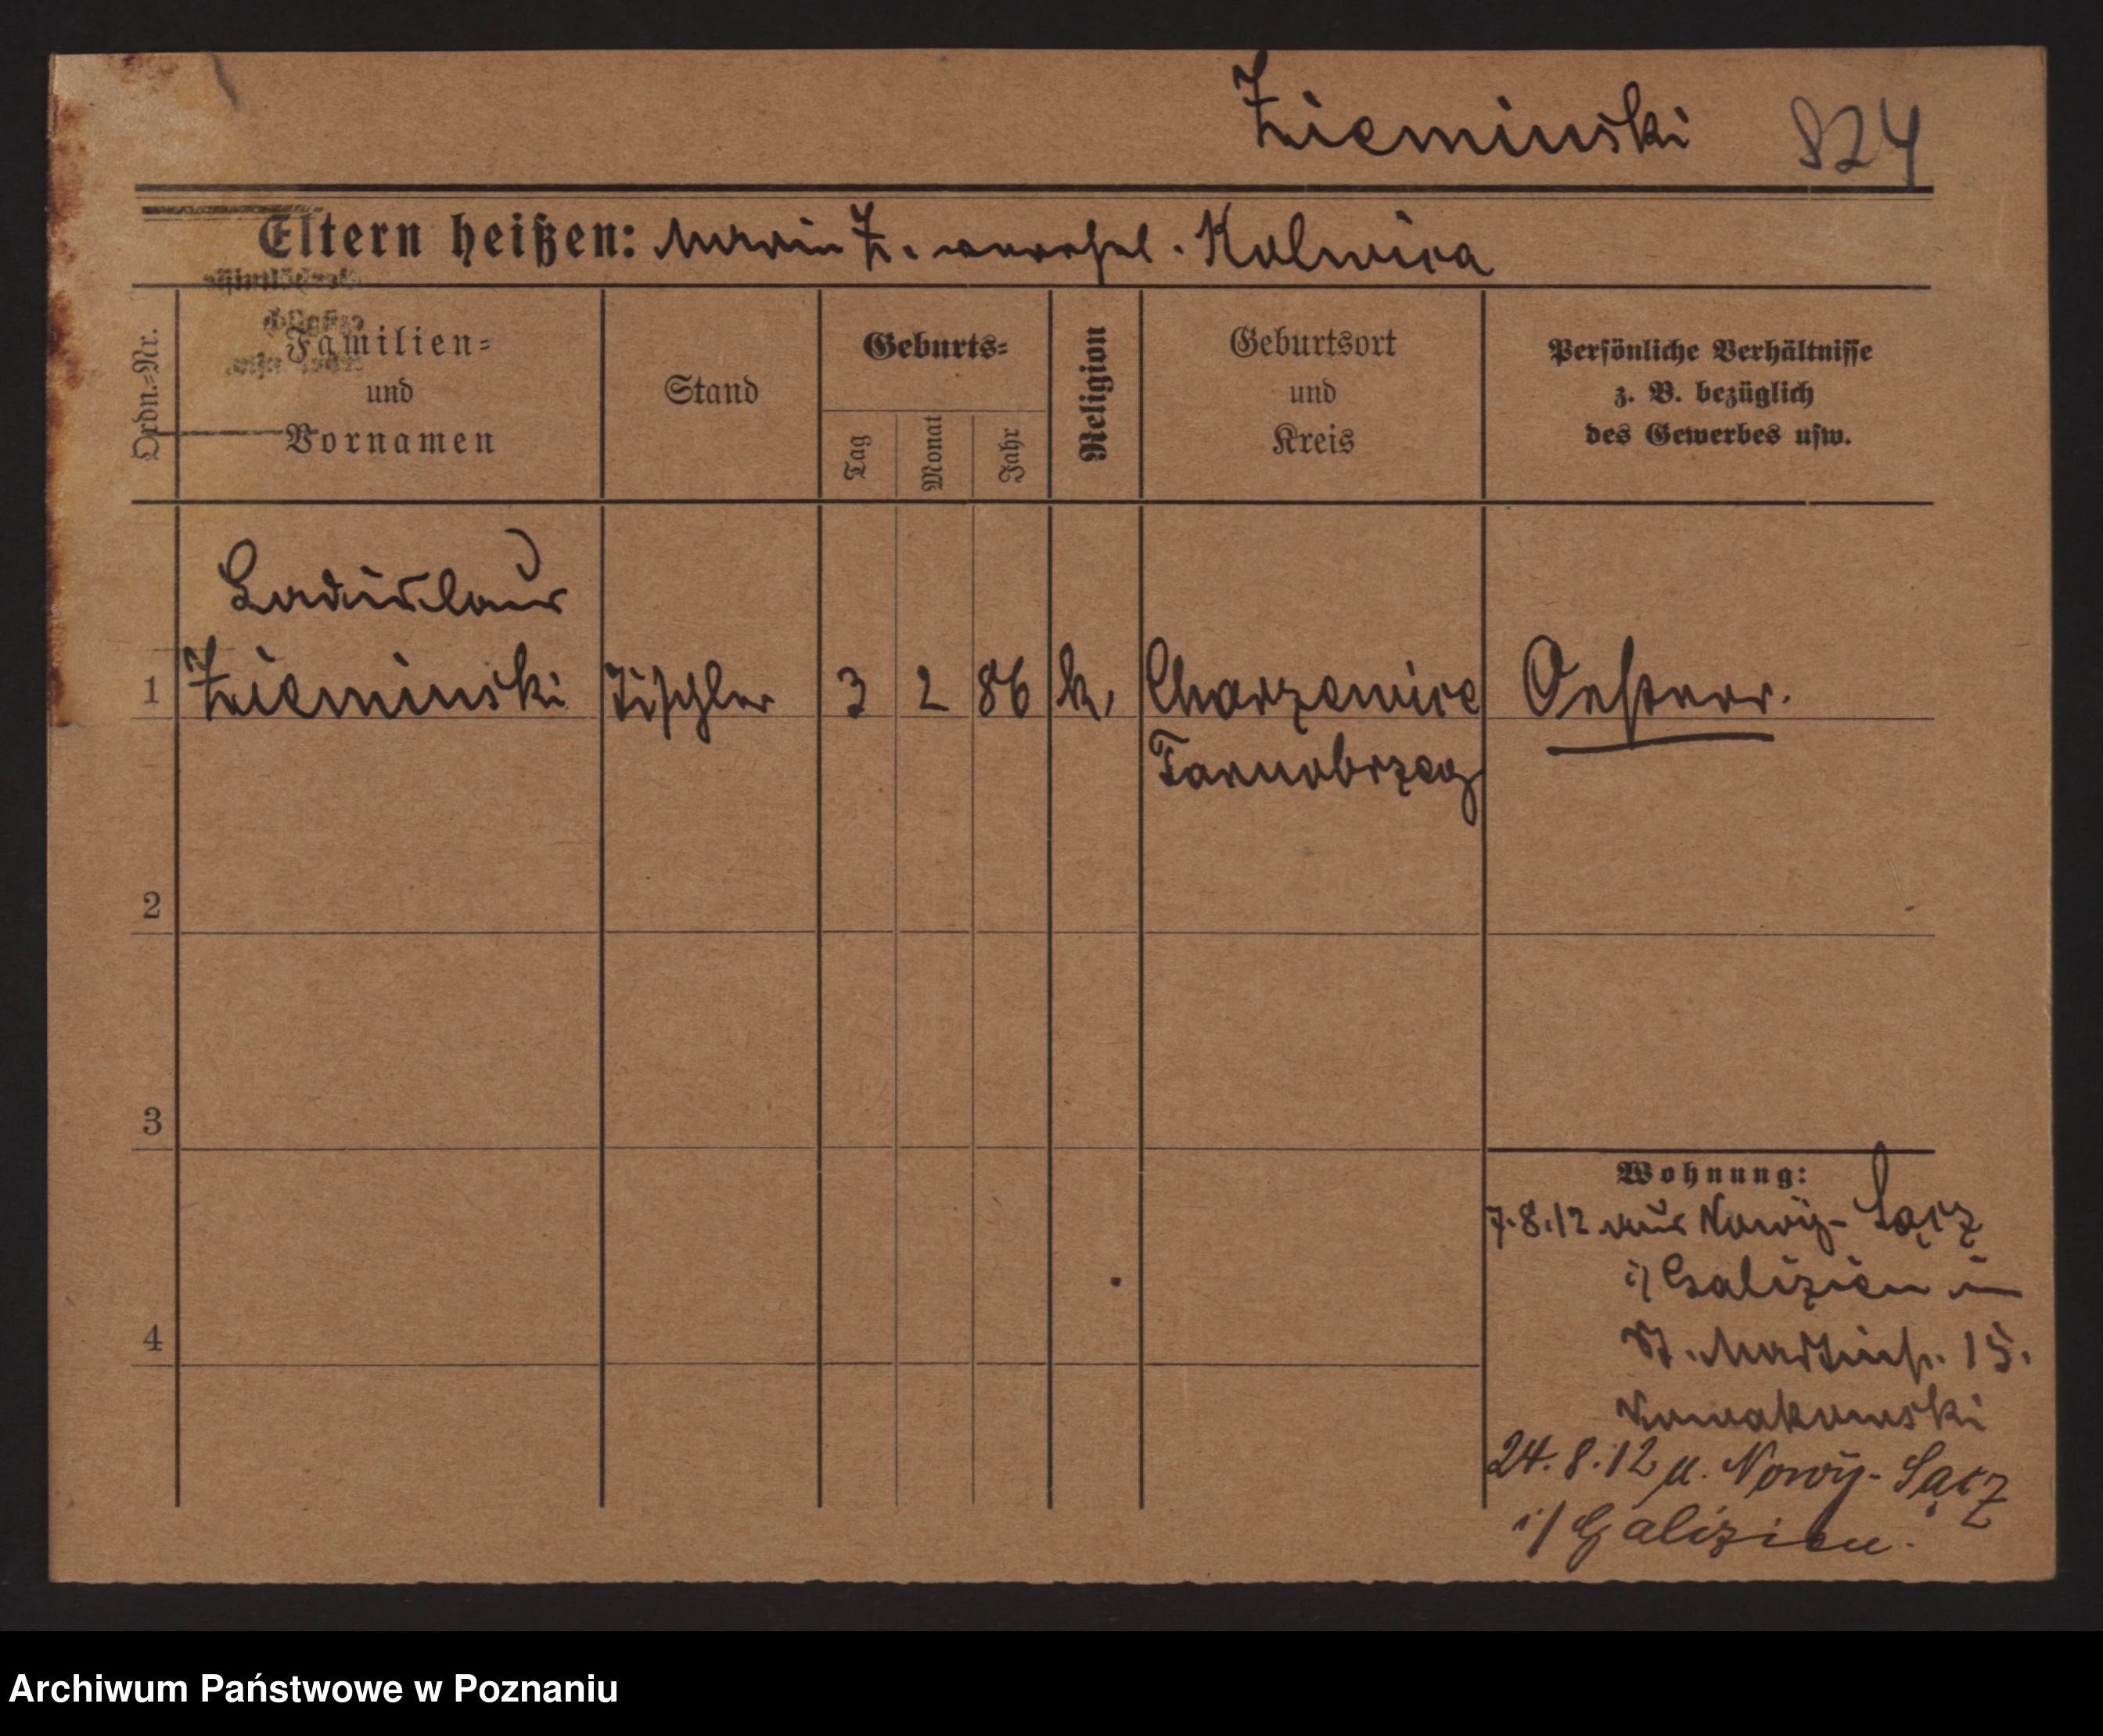 Zieminski 824
Eltern heißen: Maria Z. verehel. Kalwica
Ordn.=Nr.
Familien=
und
Vornamen
Stand
Geburts=
Tag
Monat
Jahr
Religion
Geburtsort
und
Kreis
Persönliche Verhältnisse
z. B. bezüglich
des Gewerbes usw.
Ladislaus
1 Zieminski Tischler 3 2 86 k. Charzewice Oesterr.
Tarnobrzeg
2
3
4
Wohnung:
7.8.12 aus Nowy-Sącz
i/ Galizien in
St. Martinstr. 15.
Nowakowski
24.8.12 n. Nowy-Sącz
i/ Galizien.
Archiwum Państwowe w Poznaniu